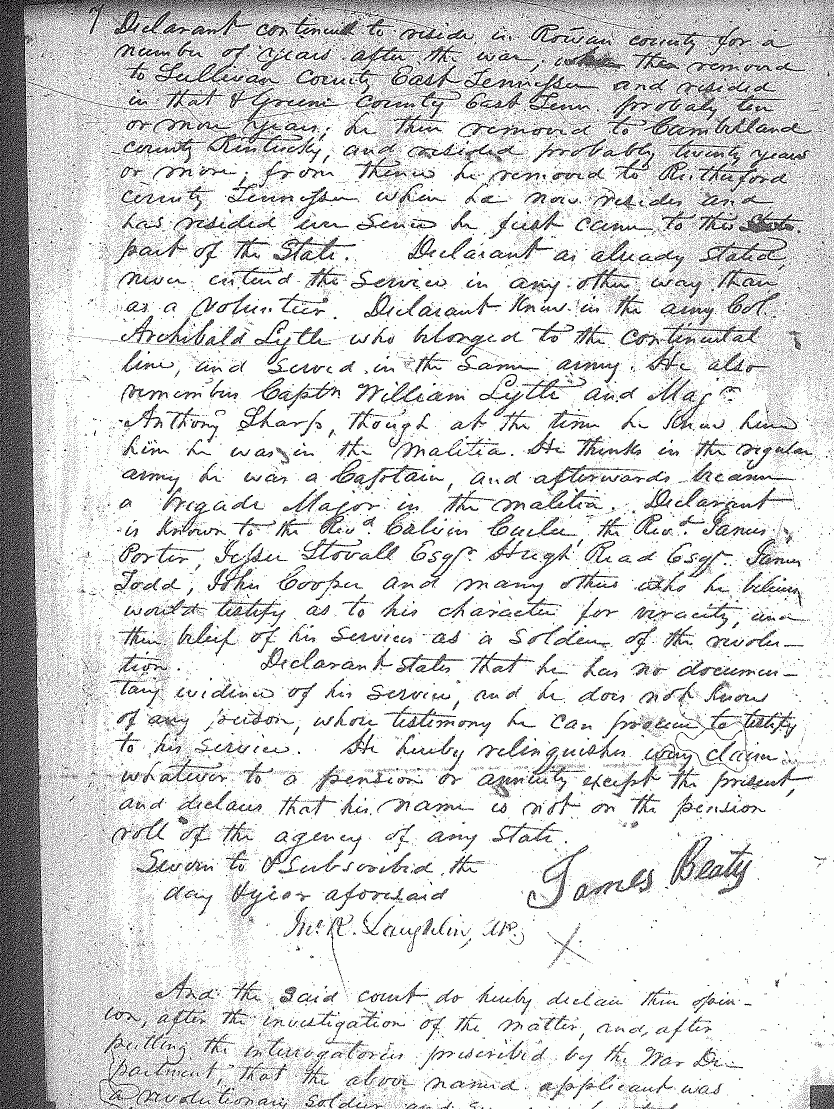 7 Declarant continued to reside in Rowan county for a
number of years after the war, then removed
to Sullivan County East Tennessee and resided
in that & Greene County East Tenn. probaly ten
or more years; he then removed to Cumberland
county Kentucky, and resided probably twenty years
or more, from thence he removed to Rutherford
county Tennessee where he now resides and
has resided ever since he first came to this State.
part of the State. Declarant as already stated,
never entered the service in any other way than
as a volunteer. Declarant knew in the army Col.
Archibald Lytle who belonged to the continental
line, and served in the same army. He also
remembers Captn William Lytle and Majr
Anthony Sharp, though at the time he knew him
him he was in the malitia. He thinks in the regular
army he was a Captain, and afterwards became
a brigade Major in the malitia. Declarant
is known to the Revd. Calvin the Revd. James
Porter, Jesse Stovall Esqr. Hugh Read Esqr. James
Todd, John Cooper and many others who he believes
would testify as to his character for veracity, and
their belief of his services as a soldier of the revolu-
tion. Declarant states that he has no documen-
tary evidence of his service, and he does not know
of any person, whose testimony he can procure to testify
to his service. He hereby relinquishes every claim
whatever to a pension or annuity except the present,
and declares that his name is not on the pension
roll of the agency of any State.
Sworn to & Subscribed the
day & year aforesaid
James Beaty
Jno. R. Laughlin,
And the said court do hereby declare their opin-
ion, after the investigation of the matter, and, after
putting the interrogatories prescribed by the War De-
partment, that the above named applicant was
a revolutionary soldier and